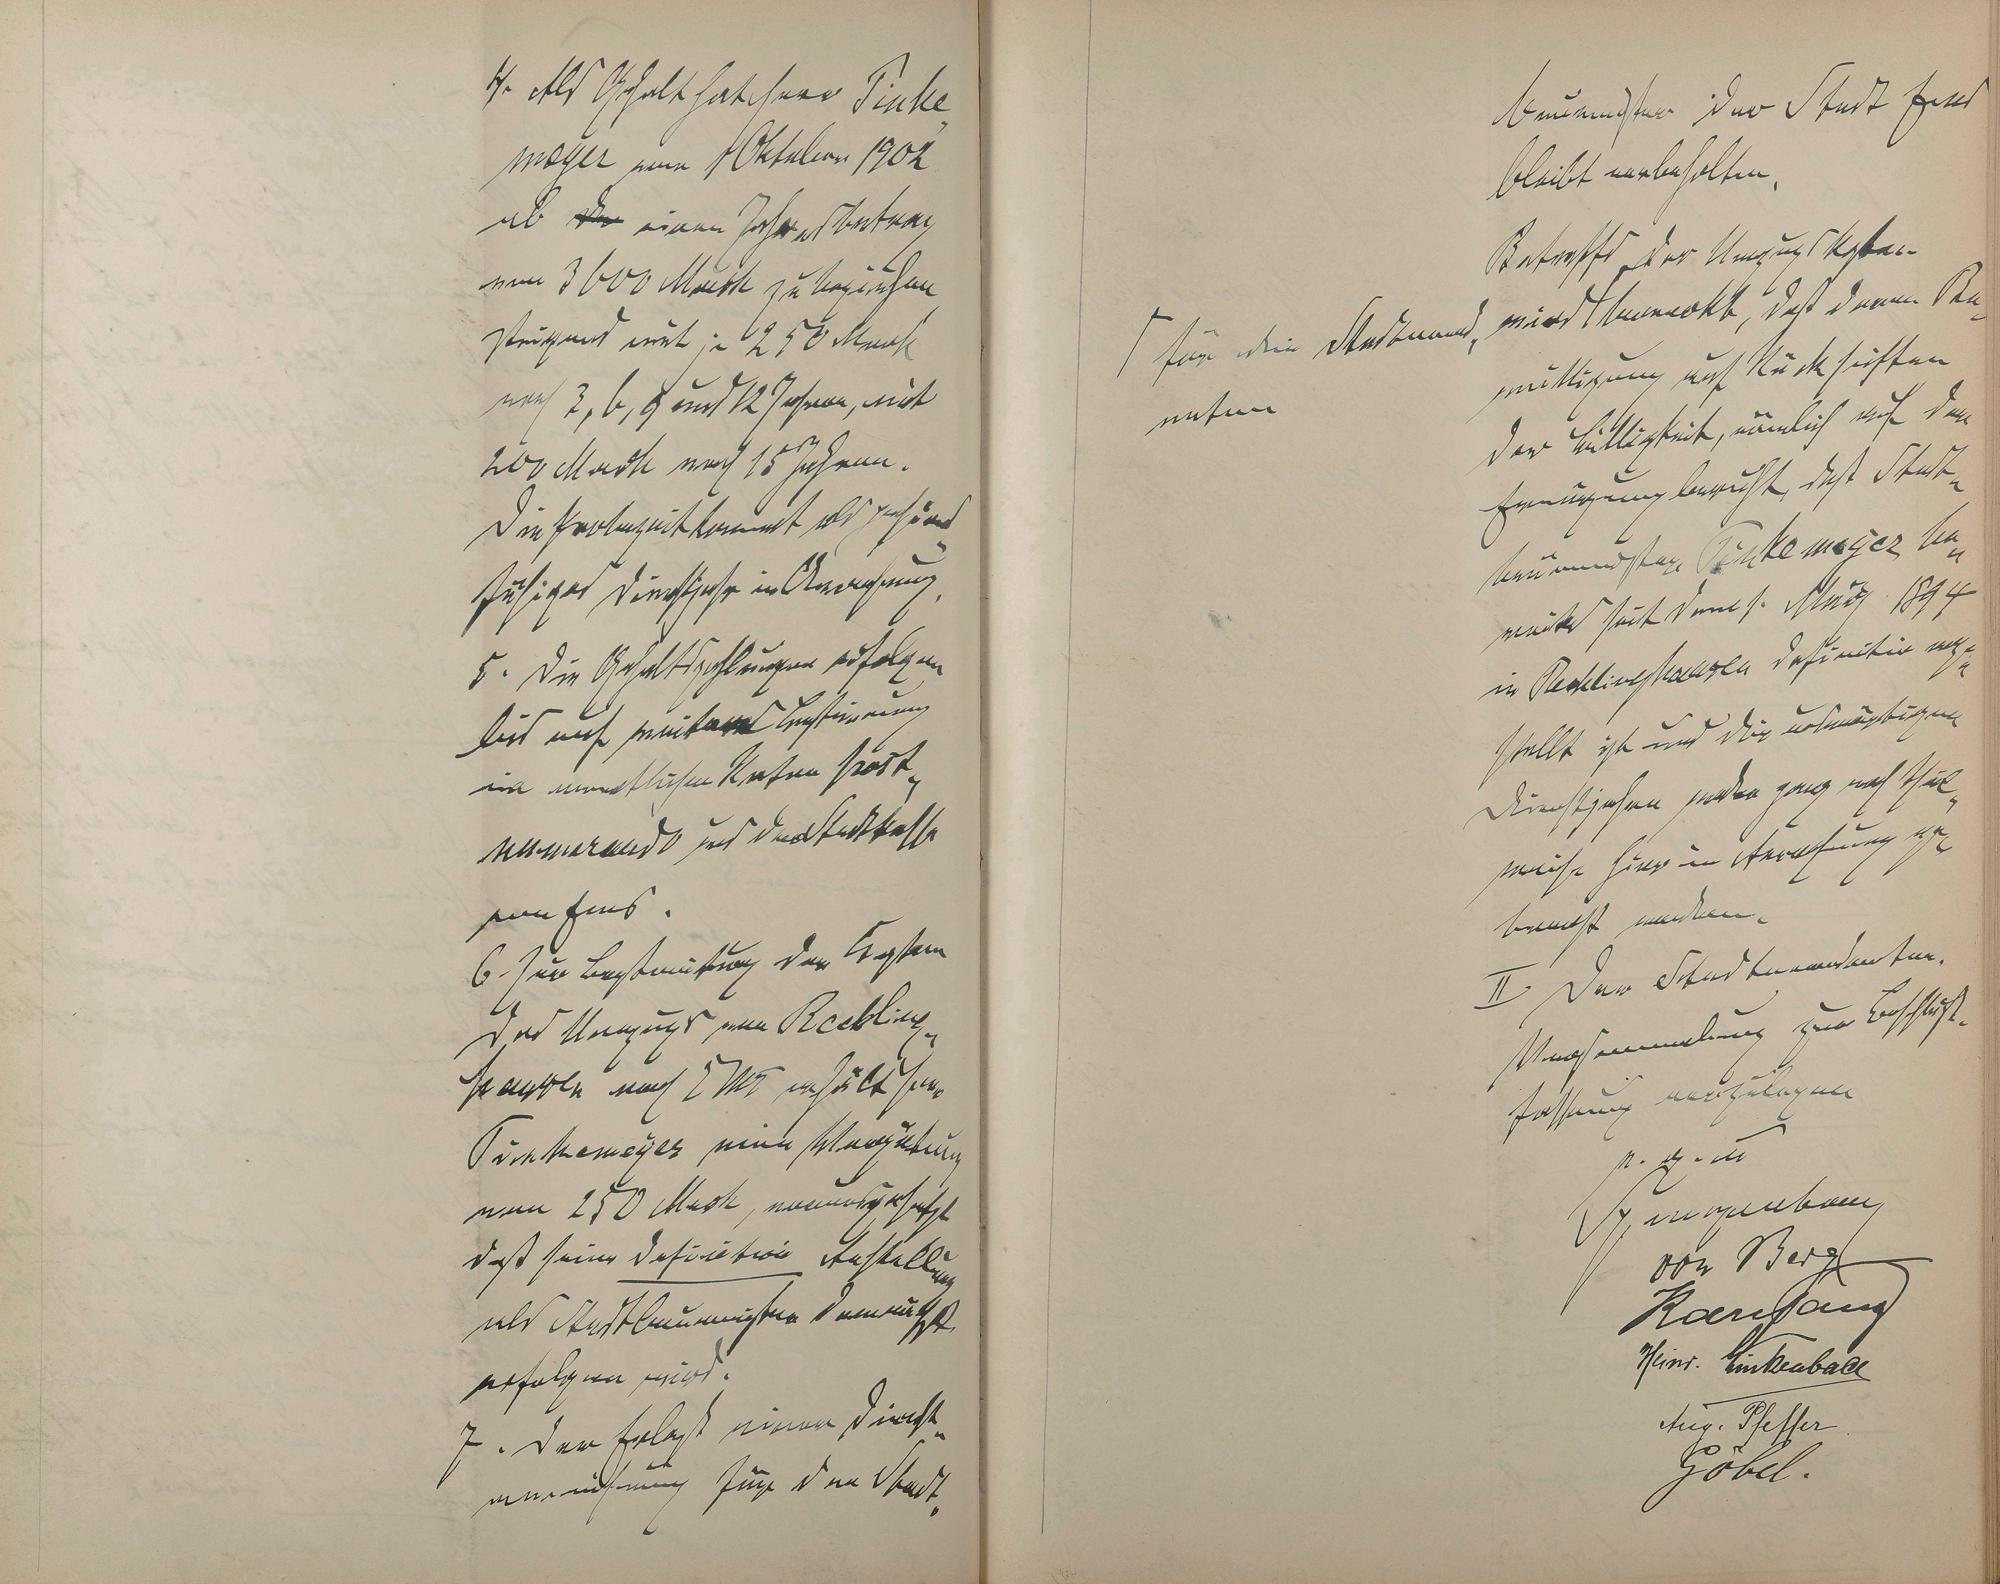 4. Als Gehalt hat Herr Finke-
meyer vom 1 Oktober 1902
ab einen Jahresbetrag
von 3600 Mark zu beziehen
steigend mit je 250 Mark
nach 3, 6, 9 und 12 Jahren, mit
200 Mark nach 15 Jahren.
Die Probezeit kommt als pensions-
fähiges Dienstjahr in Anrechnung.
5. Die Gehaltszahlungen erfolgen
bis auf weitere Bestimmung
in monatlichen Raten post-
numerando aus der Stadtkasse
von Ems.
6. Zur Bestreitung der Kosten
des Umzugs von Reckling-
hausen nach Ems erhält Herr
Finkemeyer eine Vergütung
von 250 Mark, vorausgesetzt
daß seine definitive Anstellung
als Stadtbaumeister demnächst
erfolgen wird.
7. Der Erlaß einer Dienst-
anweisung für den Stadt-
baumeister der Stadt Ems
bleibt vorbehalten.
Betreffs der Umzugskosten
wird bemerkt, daß deren Be-
willigung auf Rücksichten
der Billigkeit, nämlich auf der
Erwägung beruht, daß Stadt-
baumeister Finkemeyer be-
reits seit dem 1. März 1894
in Recklinghausen definitiv ange-
stellt ist und die auswärtigen
Dienstjahre weder ganz noch theil-
weise hier in Anrechnung ge-
bracht werden.
Γ für den Stadtverord-
neten
II Der Stadtverordneten-
Versammlung zur Beschluß-
fassung vorzulegen
v. g. u
von Berg
Heinr. Linkenbach
Aug. Pfeffer
Göbel.